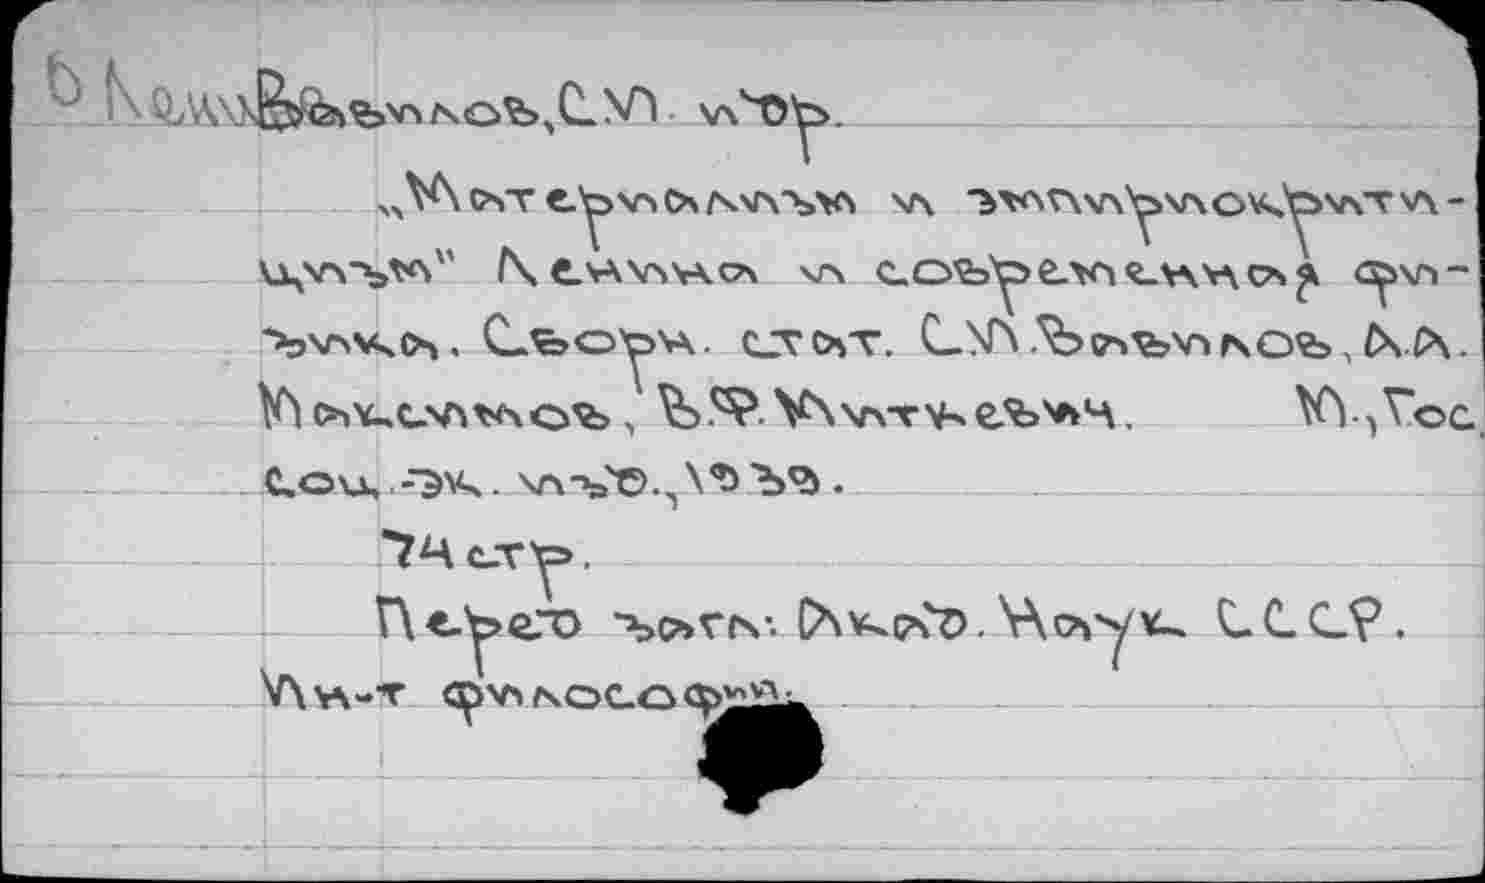 Вавилов, С.И. и др.
„Материализм и эмпириокрити-
цизм" Ленина и современная фи-
зика. Сборн. стат. С.И. Вавилов, А.А.
Максимов, В.Ф. Миткевич. М., Гос.
соц.-эк. изд., 1939.
74 стр.
Перед загл: Акад. Наук СССР.
Ин-т философии.